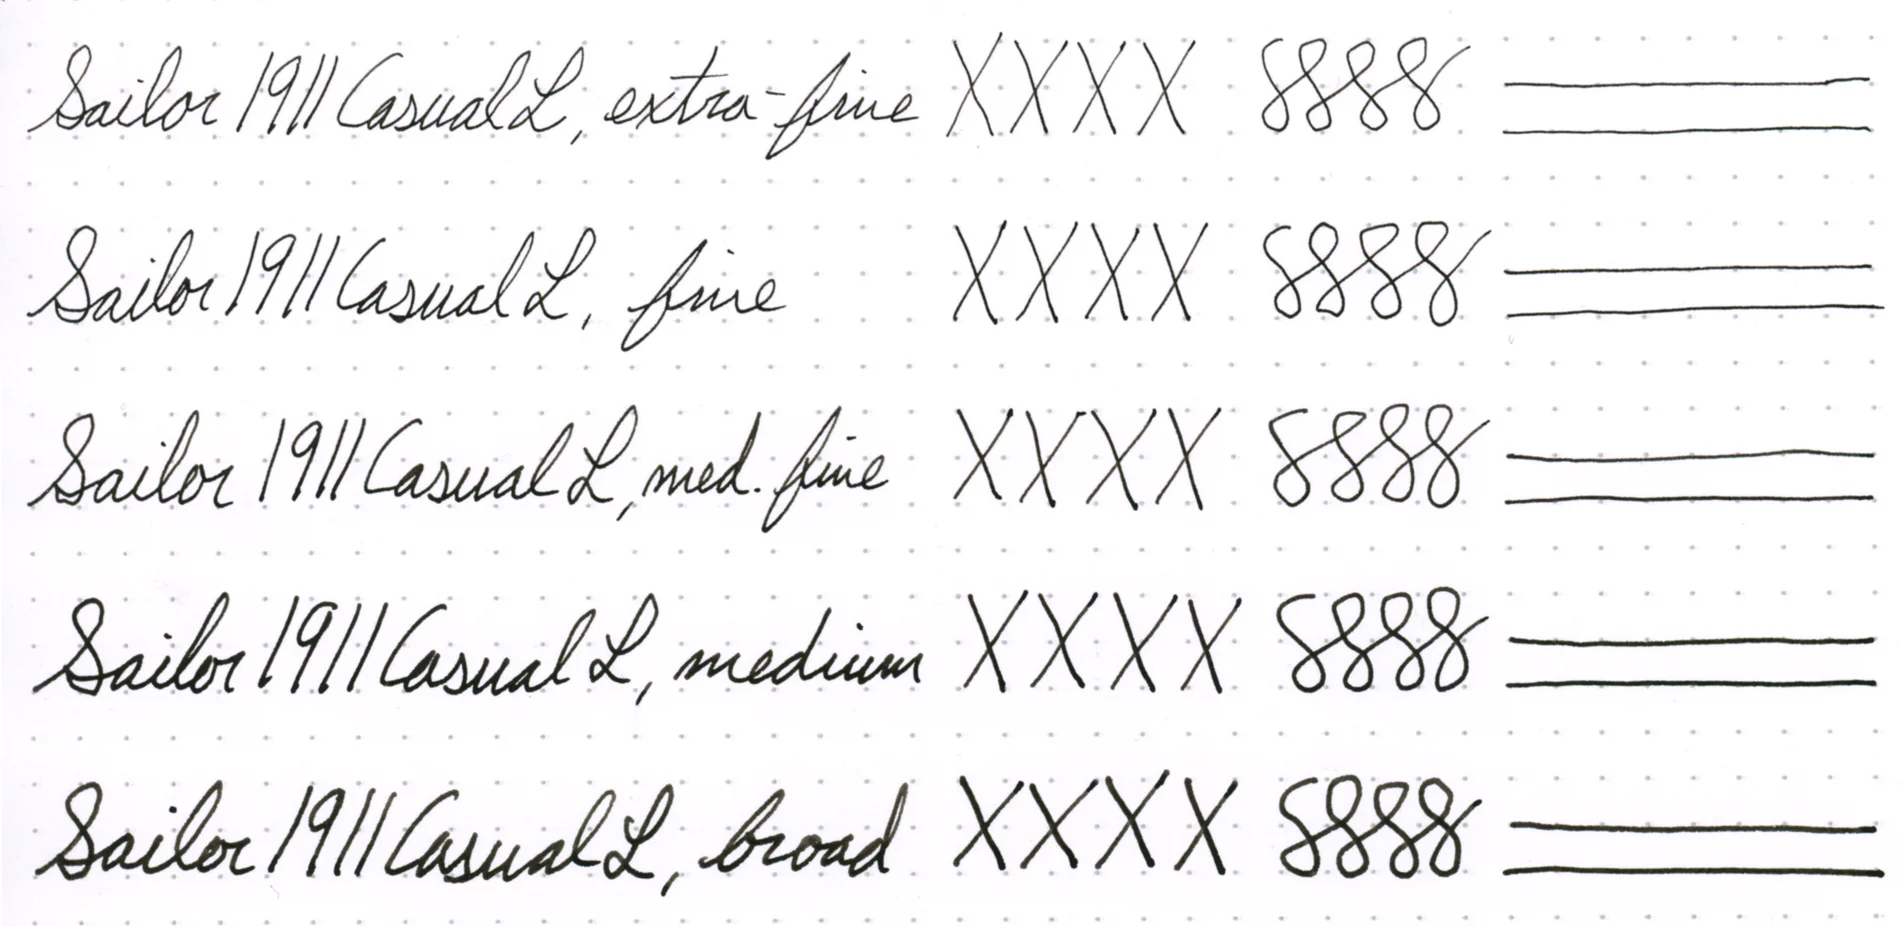 Sailor 1911 Casual L, extra-fine XXXX 8888
Sailor 1911 Casual L, fine XXXX 8888
Sailor 1911 Casual L, med. fine XXXX 8888
Sailor 1911 Casual L, medium XXXX 8888
Sailor 1911 Casual L, broad XXXX 8888